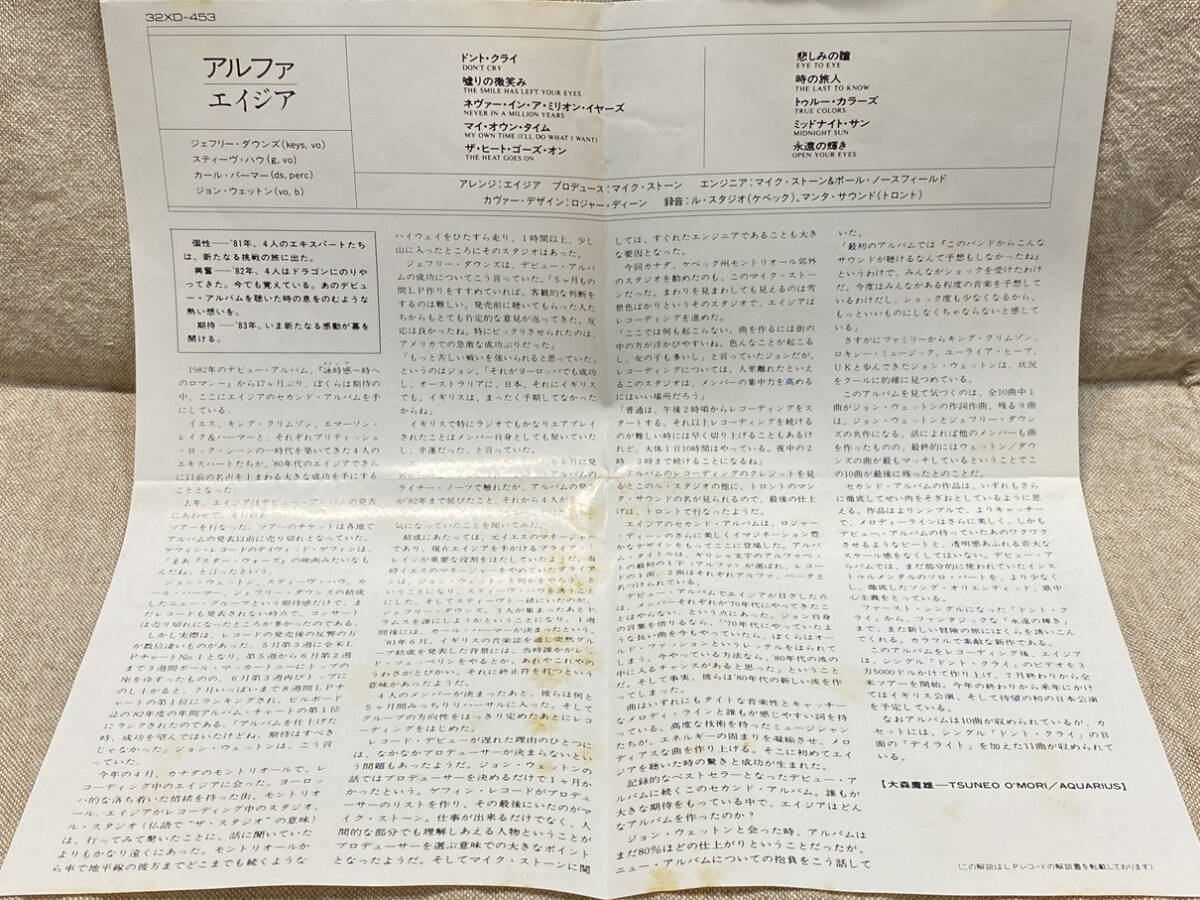 32XD-453
アルファ
エイジア
ジェフリー・ダウンズ(keys, vo)
スティーヴ・ハウ(g, vo)
カール・パーマー(ds, perc)
ジョン・ウェットン(vo, b)
ドント・クライ
DON'T CRY
嘘りの微笑み
THE SMILE HAS LEFT YOUR EYES
ネヴァー・イン・ア・ミリオン・イヤーズ
NEVER IN A MILLION YEARS
マイ・オウン・タイム
MY OWN TIME (I'LL DO WHAT I WANT)
ザ・ヒート・ゴーズ・オン
THE HEAT GOES ON
悲しみの瞳
EYE TO EYE
時の旅人
THE LAST TO KNOW
トゥルー・カラーズ
TRUE COLORS
ミッドナイト・サン
MIDNIGHT SUN
永遠の輝き
OPEN YOUR EYES
アレンジ：エイジア プロデュース：マイク・ストーン エンジニア：マイク・ストーン&ポール・ノースフィールド
カヴァー・デザイン：ロジャー・ディーン 録音：ル・スタジオ(ケベック)、マンタ・サウンド(トロント)
個性――'81年、4人のエキスパートたち
は、新たなる挑戦の旅に出た。
興奮――'82年、4人はドラゴンにのりや
ってきた。今でも覚えている。あのデビュ
ー・アルバムを聴いた時の息をのむような
熱い想いを。
期待――'83年、いま新たなる感動が幕を
開ける。
1982年のデビュー・アルバム、『詠時感～時へ
のロマン～』から17ヶ月ぶり、ぼくらは期待の
中、ここにエイジアのセカンド・アルバムを手
にしている。
イエス、キング・クリムゾン、エマーソン・
レイク&パーマーと、それぞれブリティッシュ
・ロック・シーンの一時代を築いてきた4人の
エキスパートたちが、'80年代のエイジアでさら
に以前の名声を上まわる大きな成功を手にする
こととなった。
上年、エイジアはデビュー・アルバムの発表
にあわせて、4月
ツアーを行なった。ツアーのチケットは各地で
アルバムの発表以前に売り切れとなっていた。
ゲフィン・レコードのデイヴィッド・ゲフィンは、
「まあ『スター・ウォーズ』の映画みたいなも
んだね」と言ったという。
ジョン・ウェットン、スティーヴ・ハウ、カ
ール・パーマー、ジェフリー・ダウンズの結成
したニュー・グループという期待感だけで、ま
だレコードも発表されない時点で、コンサート
は売り切れになったところが多かったのである。
しかし実際は、レコードの発売後の反響の方
が数倍凄いものがあった。5月第3週に全米L
PチャートNo.1となり、第5週から6月第2週
まで3週間ポール・マッカートニーにトップの
座をゆずったものの、6月第3週再びトップに
のし上がると、7月いっぱいまで8週間LPチ
ャートの第1位にランキングされ、ビルボード
誌の'82年度の年間アルバム・チャートの第1位
にランクされたのである。「アルバムを仕上げた
時、成功を望んではいたけどね、期待はすべき
じゃなかった」ジョン・ウェットンは、こう言
っていた。
今年の4月、カナダのモントリオールで、レ
コーディング中のエイジアに会った。ヨーロッ
パ的な落ち着いた情緒を持った街、モントリオ
ール。エイジアがレコーディング中のスタジオ、
ル・スタジオ(仏語で“ザ・スタジオ”の意味)
は、行ってみて驚いたことに、話に聞いていた
よりもかなり遠くにあった。モントリオールか
ら車で地平線の彼方までどこまでも続くような
ハイウェイをひたすら走り、1時間以上、少し
山に入ったところにそのスタジオはあった。
ジェフリー・ダウンズは、デビュー・アルバ
ムの成功についてこう言っていた。「5ヶ月もの
間LP作りをすすめていれば、客観的な判断を
するのは難しい。発売前に聴いてもらった人た
ちからもとても肯定的な意見が返ってきた。反
応は良かったね。特にビックリさせられたのは、
アメリカでの急激な成功ぶりだった」
「もっと苦しい戦いを強いられると思っていた」
というのはジョン。「それがヨーロッパでも成功
し、オーストラリアに、日本、それにイギリス
でも。イギリスは、まったく予期してなかった
からね」
イギリスで特にラジオでもかなりエアプレイ
されたことはメンバー自身としても驚いていた
し、幸運だった、と言っていた。
を6月に発
アルバムの
ライナー・ノーツで触れたが、アルバムの発
が'82年まで延びたこと、それから4人が
気になっていたことを聞いてみた。
結成にあたっては、元イエスのマネージャー
であり、現在エイジアを手がけるブライアン・
レインが重要な役割をはたしていたようだ。当
時イエスのマネージャーをやめていたブライアン
は、ジョン・ウェットンと何かをやろう、と
いうことになり、スティーヴ・ハウを誘うこと
にした。そしてスティーヴと一緒にいたのが、
ジェフリー・ダウンズ。3人が集まったあとド
ラムスを誰にしようかということになり、1週
間後には、カール・パーマーが決まったという。
'81年6月、イギリスの音楽誌を通じ突然グル
ープ結成を発表した背景には、当時誰かがレッ
ド・ツェッペリンをやるとか、あれやこれやの
うわさがとびかい、それに終止符を打つという
意味があったようだ。
4人のメンバーが決まったあと、彼らは何と
5ヶ月間みっちりリハーサルに入った。そして
グループの方向性をはっきり定めたあとにレコ
ーディングをはじめた。
レコード・デビューが遅れた理由のひとつに
は、なかなかプロデューサーが決まらないとい
う問題もあったようだ。ジョン・ウェットンの
話ではプロデューサーを決めるだけで1ヶ月か
かったという。ゲフィン・レコードがプロデュ
ーサーのリストを作り、その最後にいたのがマ
イク・ストーン。仕事が出来るだけでなく、人
間的な部分でも理解しあえる人物ということが
プロデューサーを選ぶ意味での大きなポイント
となったようだ。そしてマイク・ストーンに関
しては、すぐれたエンジニアであることも大き
な要因となった。
今回カナダ、ケベック州モントリオール郊外
のスタジオを勧めたのも、このマイク・ストー
ンだった。まわりを見まわしても見えるのは雪
景色ばかりというそのスタジオで、エイジアは
レコーディングを進めた。
「ここでは何も起こらない。曲を作るには街の
中の方が浮かびやすいね。色んなことが起こる
し、女の子も多いし」と言っていたジョンだが、
レコーディングについては、人里離れたといえ
るこのスタジオは、メンバーの集中力を高める
にはいい場所だろう」
「普通は、午後2時頃からレコーディングをス
タートする。それ以上レコーディングを続ける
のが難しい時には早く切り上げることもあるけ
れど、大体1日10時間はやっている。夜中の2
時、3時まで続けることになるね」
アルバムのレコーディングのクレジットを見
るとこのル・スタジオの他に、トロントのマン
タ・サウンドの名が見られるので、最後の仕上
げは、トロントで行なったようだ。
エイジアのセカンド・アルバムは、ロジャー
・ディーンのさらに美しくイマジネーション豊
かなデザインをもってここに登場した。アルバ
ム・タイトルは、ギリシャ文字のアルファベッ
トの最初の1字(アルファ)が選ばれ、レコー
ドの1面、2面はそれぞれアルファ、ベータと
名づけられている。
デビュー・アルバムでエイジアが目ざした点
は、メンバーそれぞれが'70年代にやってきたこ
とはやらない、という点にあった。ジョン自身
の言葉を借りるなら、「'70年代にやっていたよ
うな長い曲を今もやっていたら、ぼくらはオー
ルド・ファッションというレッテルをはられて
しまう。今やっている方法なら、'80年代の波の
中に入るチャンスがあると思った」ということ
だ。そして事実、彼らは'80年代の新しい波を作
ってしまった。
曲はいずれにもタイトな音楽性とキャッチー
なメロディ・ラインと誰もが感じやすい詞を持
っている。高度な技術を持ったミュージシャン
たちが、エネルギーの固まりを凝縮させ、メロ
ディアスな曲を作り上げる。そこに初めてエイ
ジアを聴いた時の驚きと成功が生まれた。
記録的なベストセラーとなったデビュー・ア
ルバムに続くこのセカンド・アルバム。誰もが
大きな期待をもっている中で、エイジアはどん
なアルバムを作ったのか？
ジョン・ウェットンと会った時、アルバムは
まだ80％ほどの仕上がりということだったが、
ニュー・アルバムについての抱負をこう話して
いた。
「最初のアルバムでは『このバンドからこんな
サウンドが聴けるなんて予想もしなかったね』
というわけで、みんながショックを受けたわけ
だ。今度はみんながある程度の音楽を予想して
いるわけだし、ショック度も少なくなるから、
もっといいものにしなくちゃならないと感じて
いる」
さすがにファミリーからキング・クリムゾン、
ロキシー・ミュージック、ユーライア・ヒープ、
UKと歩んできたジョン・ウェットンは、状況
をクールに的確に見つめている。
このアルバムを見て気づくのは、全10曲中1
曲がジョン・ウェットンの作詞作曲、残る9曲
は、ジョン・ウェットンとジェフリー・ダウン
ズの共作になる。話によれば他のメンバーも曲
を作ったものの、最終的にはウェットン／ダウ
ンズの曲が最もマッチしているということでこ
の10曲が最後に残ったとのことだ。
セカンド・アルバムの作品は、いずれもさら
に徹底してぜい肉をそぎおとしているように思
える。作品はよりシンプルで、よりキャッチー
で、メロディーラインはさらに美しく、しかも
デビュー・アルバムの持っていたあのワクワク
させるようなビートと、透明感あふれる荘大な
スケール感をなくしてはいない。デビュー・ア
ルバムでは、まだ部分的に使われていたインス
トゥルメンタルのソロ・パートを、より少なく
し、徹底したソング・オリエンティド、歌中
心主義をとっている。
ファースト・シングルになった「ドント・ク
ライ」から、ファンタジックな「永遠の輝き」
まで、また新しい冒険の旅にぼくらを誘いこん
でくれる。カラフルで素敵な新作である。
このアルバムをレコーディング後、エイジア
は、シングル「ドント・クライ」のビデオを3
万5000ドルかけて作り上げ、7月終わりから全
米ツアーを開始。今年の終わりから来年にかけ
てはイギリス公演、そして待望の初の日本公演
を予定している。
なおアルバムは10曲が収められているが、カ
セットには、シングル「ドント・クライ」のB
面の「デイライト」を加えた11曲が収められて
いる。
【大森庸雄―TSUNEO O'MORI／AQUARIUS】
(この解説はLPレコードの解説書を転載しております)